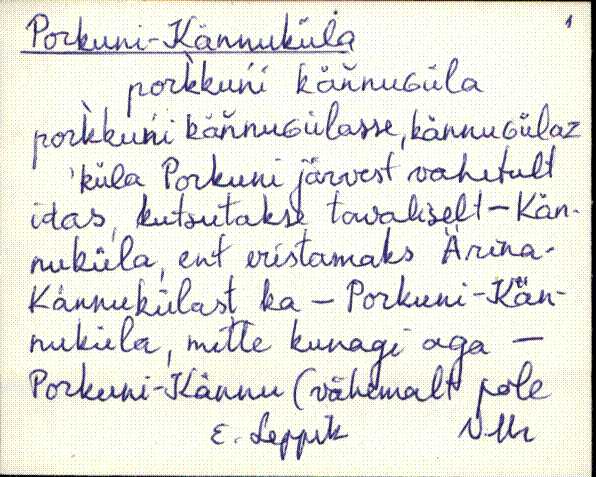 1
Porkuni-Kännuküla
por̀kkuńi käňnuGüla
por̀kkuńi käňnuGülasse, kännuGülaz
'küla Porkuni järvest vahetult
idas, kutsutakse tavaliselt – Kän-
nuküla, ent eristamaks Ärina-
Kännukülast ka – Porkuni-Kän-
nuküla, mitte kunagi aga –
Porkuni-Kännu (vähemalt pole
E. Leppik VMr